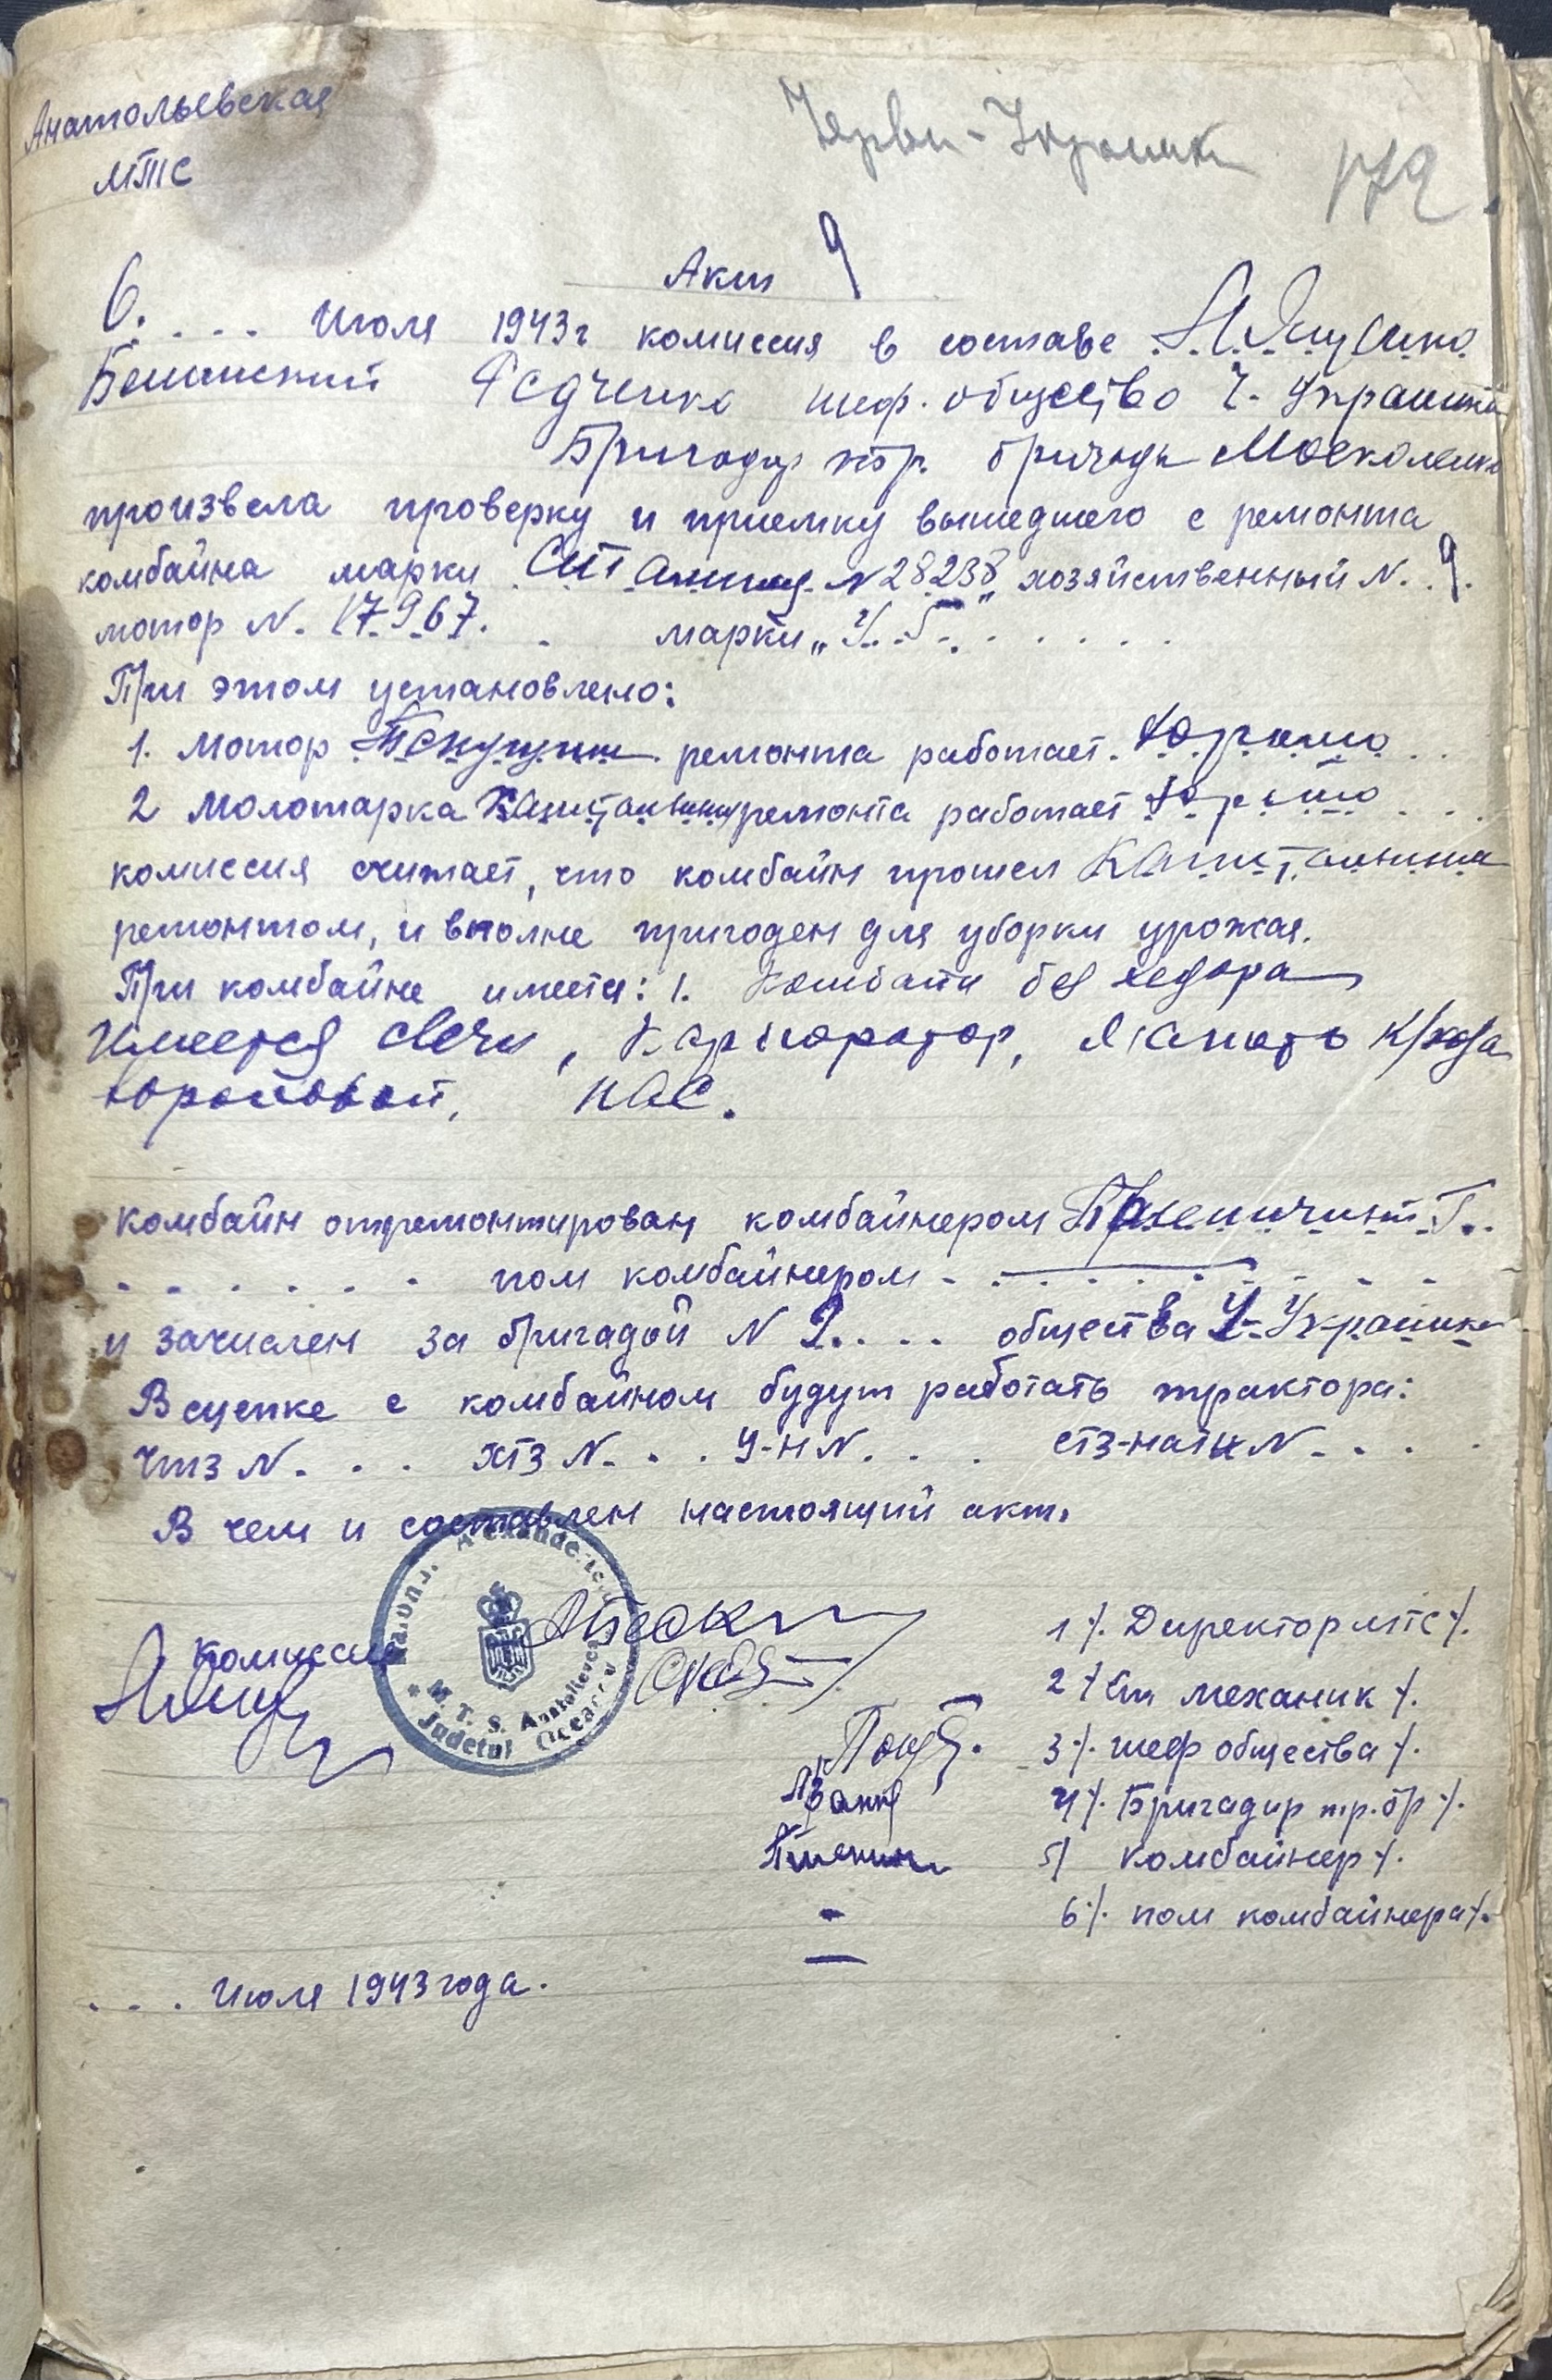 Анатольевская
МТС
Черви-Украинка
172
Акт 9
6. . . . Июля 1943г комиссия в составе
Федченко шеф. общество Ч. Украинка
Бригадир тр. бригады Москаленко
произвела проверку и приемку вышедшего с ремонта
комбайна марки Сталинец N 28238 хозяйственный N. 9.
мотор N. 17967. . марки „У. Г.
При этом установлено:
1. Мотор Текущим ремонта работает. Хорошо . .
2 Молотарка Капитальним ремонта работает Хорошо . . .
комиссия считает, что комбайн прошел Капитальным
ремонтом, и вполне пригоден для уборки урожая.
При комбайне имеетя: 1. Комбайн без хедора
Имеется свечи, Карбюратор,
нас.
комбайн отремонтирован комбайнером Г..
. . . . . . пом комбайнером - . . . . . . .
и зачислен за бригадой N 2. . . . общества Ч-Украинка
В сцепке с комбайном будут работать трактора:
ЧТЗ N. . . . ХТЗ N. . . У-Н N. . . СТЗ-НАТИ N. . . .
В чем и составлен настоящий акт.
Raionul Alexanderfeld
M. T. S. Anatolievca
Judetul Oceacov
Комиссия
1 /. Директор мтс /.
2 / Ст механик /.
3 /. шеф общества /.
4 /. Бригадир тр. бр /.
Пшенич
5/ комбайнер /.
- 6 /. пом комбайнера /.
. . . Июля 1943 года.